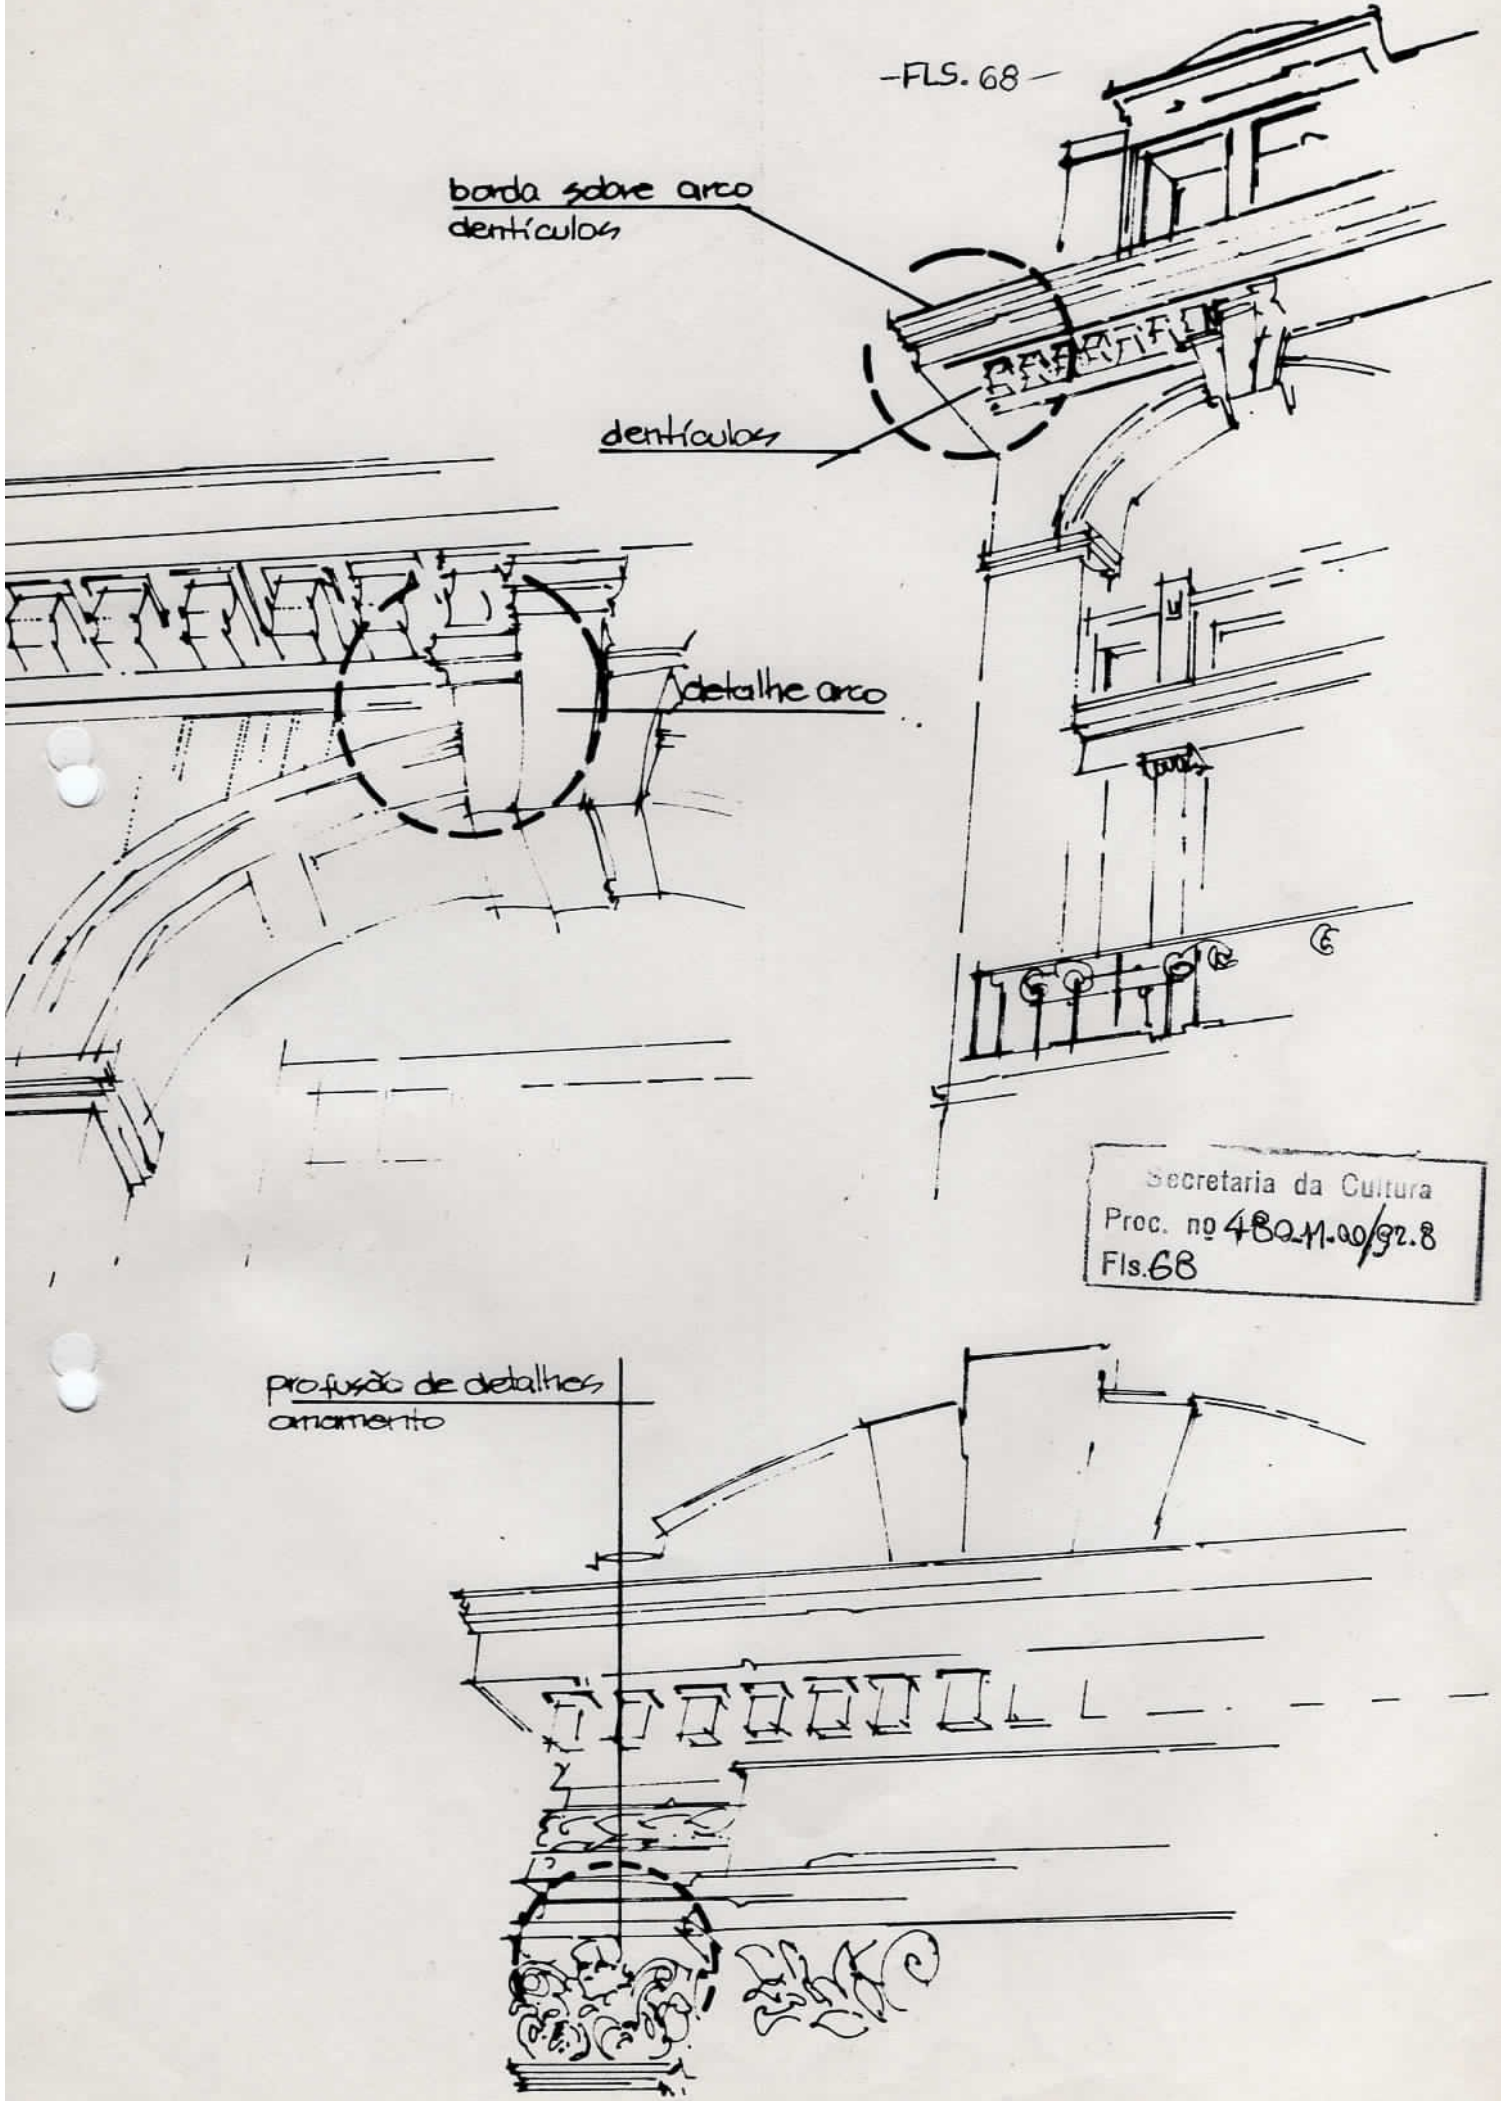 -FLS. 68-
borda sobre arco
dentículos
dentículos
detalhe arco
Secretaria da Cultura
Proc. nº 480-11.00/92.8
Fls. 68
profusão de detalhes
ornamento